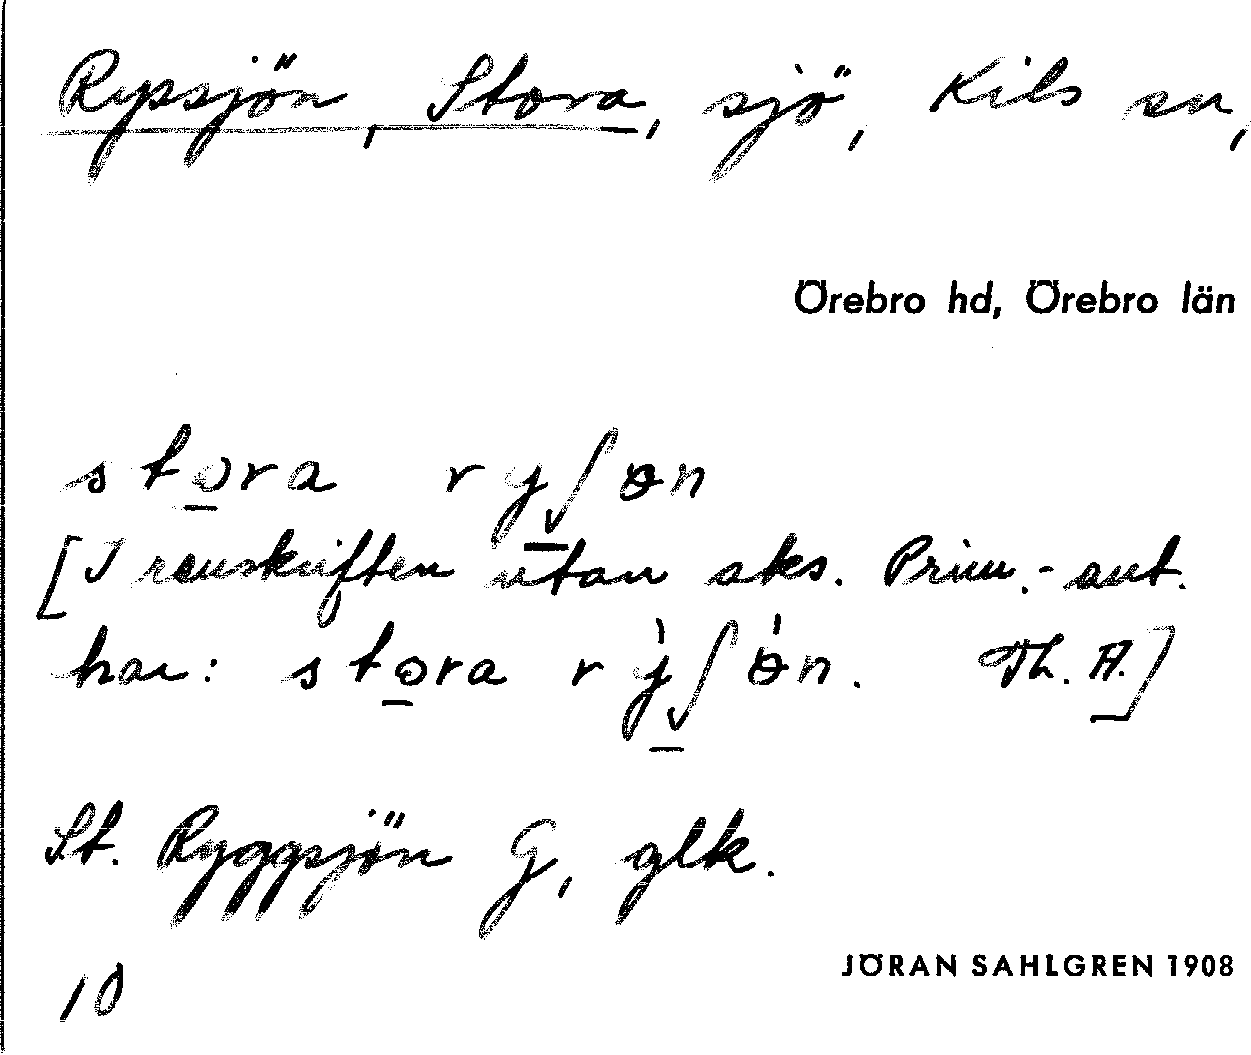 Rypsjön, Stora, sjö, Kils sn,
Örebro hd, Örebro län
stora ryʃɵn
[I renskriften utan aks. Prim.-ant.
har: stora rỳʃɵ̀n. Th. A.]
St. Ryggsjön G, glk.
10
JÖRAN SAHLGREN 1908